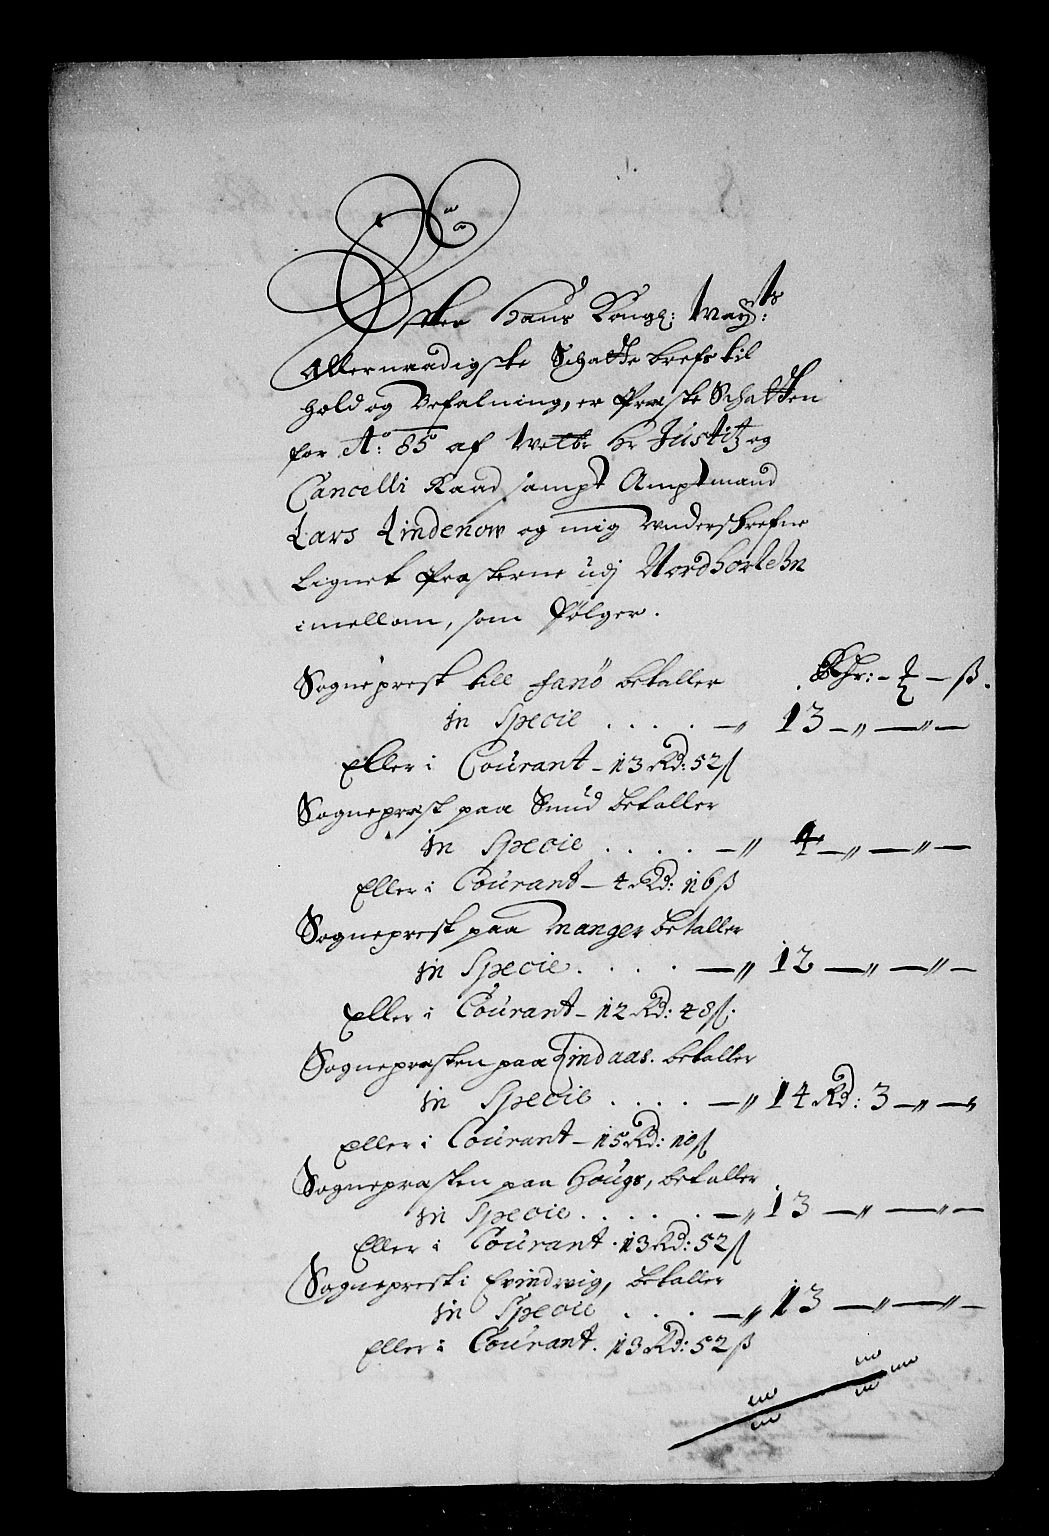 Efter Hans Kongl: May:ts
Allernaadigste Schatte brefs til
hold og befalning, er Præste Schatten
for Ao: 85 af welbr Hr Justitz og
Cancelli Raad sampt Amptmand
Lars Lindenow og mig underskrefne
Lignet Præsterne udj Nordhorlehn
imellom, som følger.
Sogneprest till Fanö betaller Rdr: - ₰ - ß.
in Specie . . . . — „ 13 — „ — „ —
Eller i Courant – 13 Rd: 52 ß
Sognepræst paa Sund betaller
in Specie . . . . — „ 4 — „ — „ —
Eller i Courant – 4 Rd: 16 ß
Sogneprest paa Manger betaller
in Specie . . . . — „ 12 — „ — „ —
Eller i Courant – 12 Rd: 48 ß.
Sognepræsten paa Lindaas. betaller
in Specie . . . . — „ 14 Rd: 3 — „ — „
Eller i Courant – 15 Rd: 10 ß
Sognepræsten paa Hougs, betaller
in Specie . . . . . — „ 13 — „ — „ —
Eller i Courant . 13 Rd: 52 ß
Sogneprest i Evindwig, betaller
in Specie . . . — „ 13 — „ — „ —
Eller i Courant . 13 Rd: 52 ß